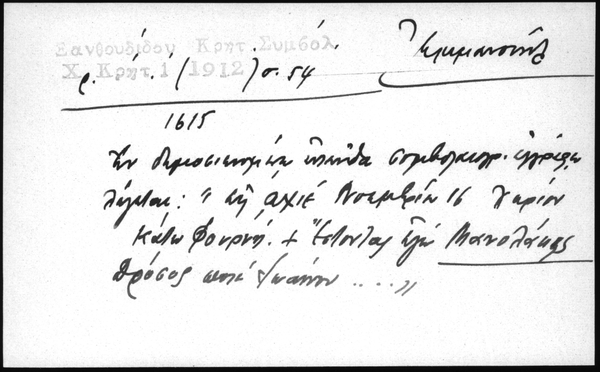 Ξανθουδίδου Κρητ. Συμβόλ.
Χ. Κρητ. 1 1912 σ. 54
Ἐμμανουήλ
1615
Ἐν δημοσιευομένῳ ἐνταῦθα συμβολαιογρ. ἐγγράφῳ
λέγεται: " ͵αχιε Νοεμβρίου 16 χωρίον
Κάτω Φουρνή. + Ἔστοντας ἐγὼ Μανολάκης
Θρᾶσος ποτὲ Ἰωάννου .... "